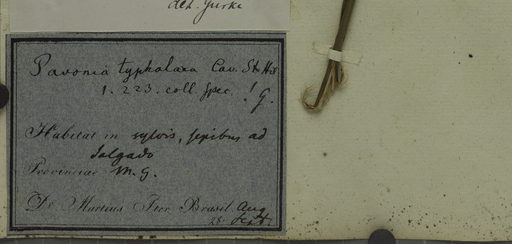 det. Gürke
Pavonia typhalaea Cav. St. Hil
1. 223. coll. spec. ! G.
Habitat in sylvis, sepibus ad
Salgado
Provinciae M. G.
Dr. Martius Iter Brasil. Aug
Sept.